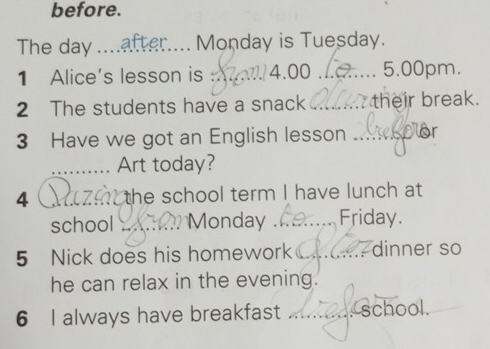 before.
The day ....after.... Monday is Tuesday.
1 Alice's lesson is from 4.00 to 5.00pm.
2 The students have a snack during their break.
3 Have we got an English lesson before or
.......... Art today?
4 During the school term I have lunch at
school from Monday to Friday.
5 Nick does his homework after dinner so
he can relax in the evening.
6 I always have breakfast before school.